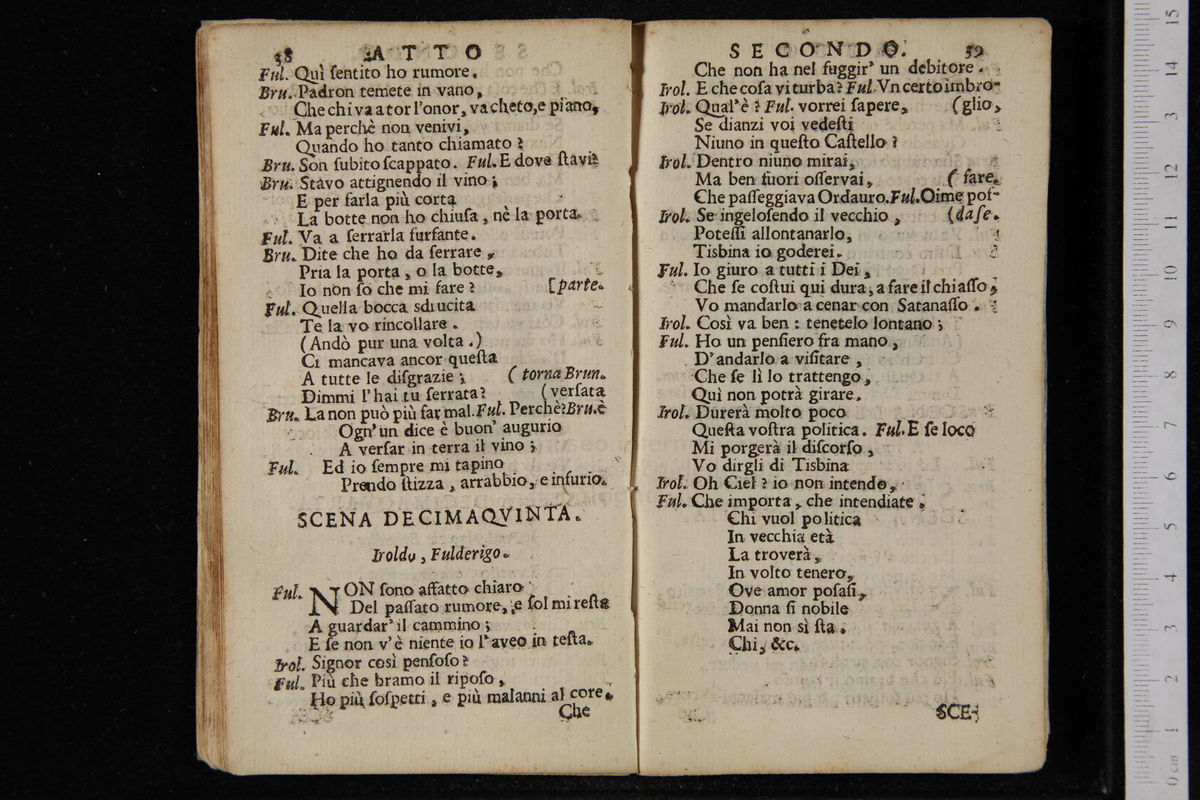 38 ATTO
Ful. Quì ſentito ho rumore.
Bru. Padron temete in vano,
Che chi va a tor l'onor, va cheto, e piano,
Ful. Ma perchè non venivi,
Quando ho tanto chiamato?
Bru. Son ſubito ſcappato. Ful. E dove ſtavi?
Bru. Stavo attignendo il vino;
E per farla più corta
La botte non ho chiuſa, nè la porta.
Ful. Va a ſerrarla furfante.
Bru. Dite che ho da ſerrare,
Pria la porta, o la botte,
Io non ſo che mi fare? [parte.
Ful. Quella bocca sdrucita
Te la vo rincollare.
(Andò pur una volta.)
Ci mancava ancor queſta
A tutte le diſgrazie; (torna Brun.
Dimmi l'hai tu ſerrata? (verſata
Bru. La non può più far mal. Ful. Perchè? Bru. è
Ogn'un dice è buon' augurio
A verſar in terra il vino;
Ful. Ed io ſempre mi tapino
Prendo ſtizza, arrabbio, e infurio.
SCENA DECIMAQVINTA.
Iroldo, Fulderigo.
Ful. NON ſono affatto chiaro
Del paſſato rumore, e ſol mi reſta
A guardar' il cammino;
E ſe non v'è niente io l'aveo in teſta.
Irol. Signor così penſoſo?
Ful. Più che bramo il ripoſo,
Ho più ſoſpetti, e più malanni al core.
Che
SECONDO. 59
Che non ha nel fuggir' un debitore.
Irol. E che coſa vi turba? Ful Vn certo imbro-
Irol. Qual'è? Ful. vorrei ſapere, (glio,
Se dianzi voi vedeſti
Niuno in queſto Caſtello?
Irol. Dentro niuno mirai,
Ma ben fuori oſſervai, (fare.
Che paſſeggiava Ordauro. Ful. Oime poſ-
Irol. Se ingeloſendo il vecchio, (da ſe.
Poteſſi allontanarlo,
Tisbina io goderei.
Ful. Io giuro a tutti i Dei,
Che ſe coſtui qui dura, a fare il chiaſſo,
Vo mandarlo a cenar con Satanaſſo.
Irol. Così va ben: tenetelo lontano;
Ful. Ho un penſiero fra mano,
D'andarlo a viſitare,
Che ſe lì lo trattengo,
Quì non potrà girare.
Irol. Durerà molto poco
Queſta voſtra politica. Ful. E ſe loco
Mi porgerà il diſcorſo,
Vo dirgli di Tisbina
Irol. Oh Ciel? io non intendo,
Ful. Che importa, che intendiate;
Chi vuol politica
In vecchia età
La troverà,
In volto tenero,
Ove amor poſaſi,
Donna ſi nobile
Mai non sì ſta.
Chi, &c.
SCE-